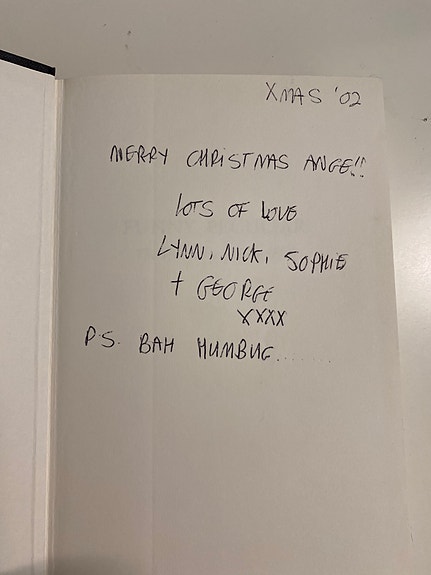 XMAS '02
MERRY CHRISTMAS ANGE!!
LOTS OF LOVE
LYNN, NICK, SOPHIE
+ GEORGE
XXXX
P.S. BAH HUMBUG.......